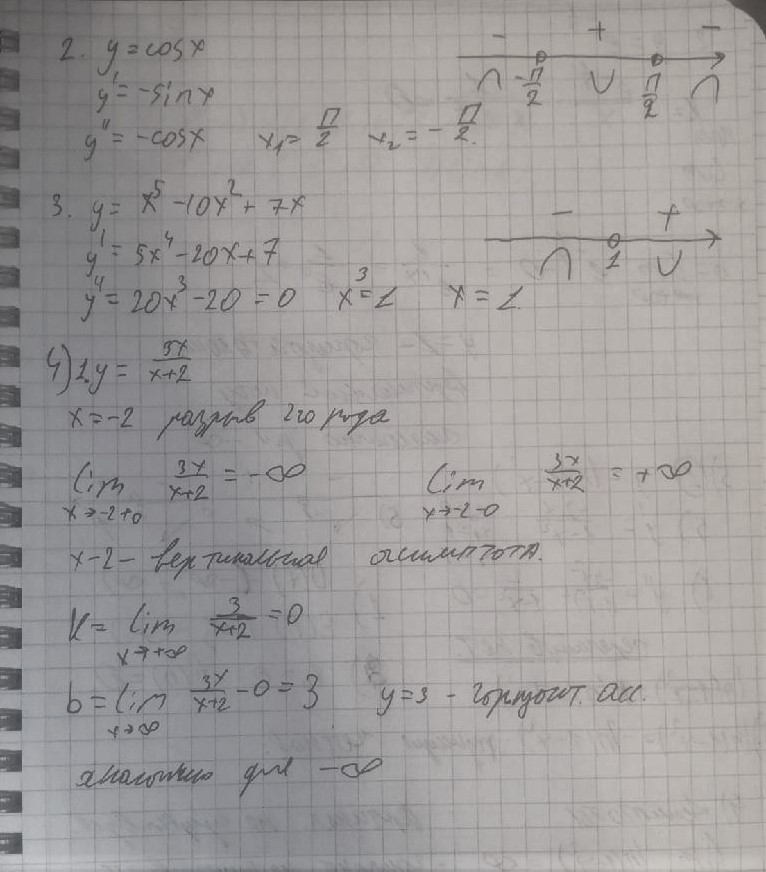 2. y = cosx
y' = -sinx
y'' = -cosx x₁ = П/2 x₂ = -П/2.
- + -
∩ -П/2 ∪ П/2 ∩
3. y = x⁵ - 10x² + 7x
y' = 5x⁴ - 20x + 7
y'' = 20x³ - 20 = 0 x³ = 1 x = 1
- +
∩ 1 ∪
4) 1. y = 3x/(x+2)
x = -2 разрыв 2го рода
lim x→-2+0 3x/(x+2) = -∞ lim x→-2-0 3x/(x+2) = +∞
x-2 - вертикальная асимптота.
K = lim x→+∞ 3/(x+2) = 0
b = lim x→∞ 3x/(x+2) - 0 = 3 y=3 - горизонт. асс.
аналогично для -∞